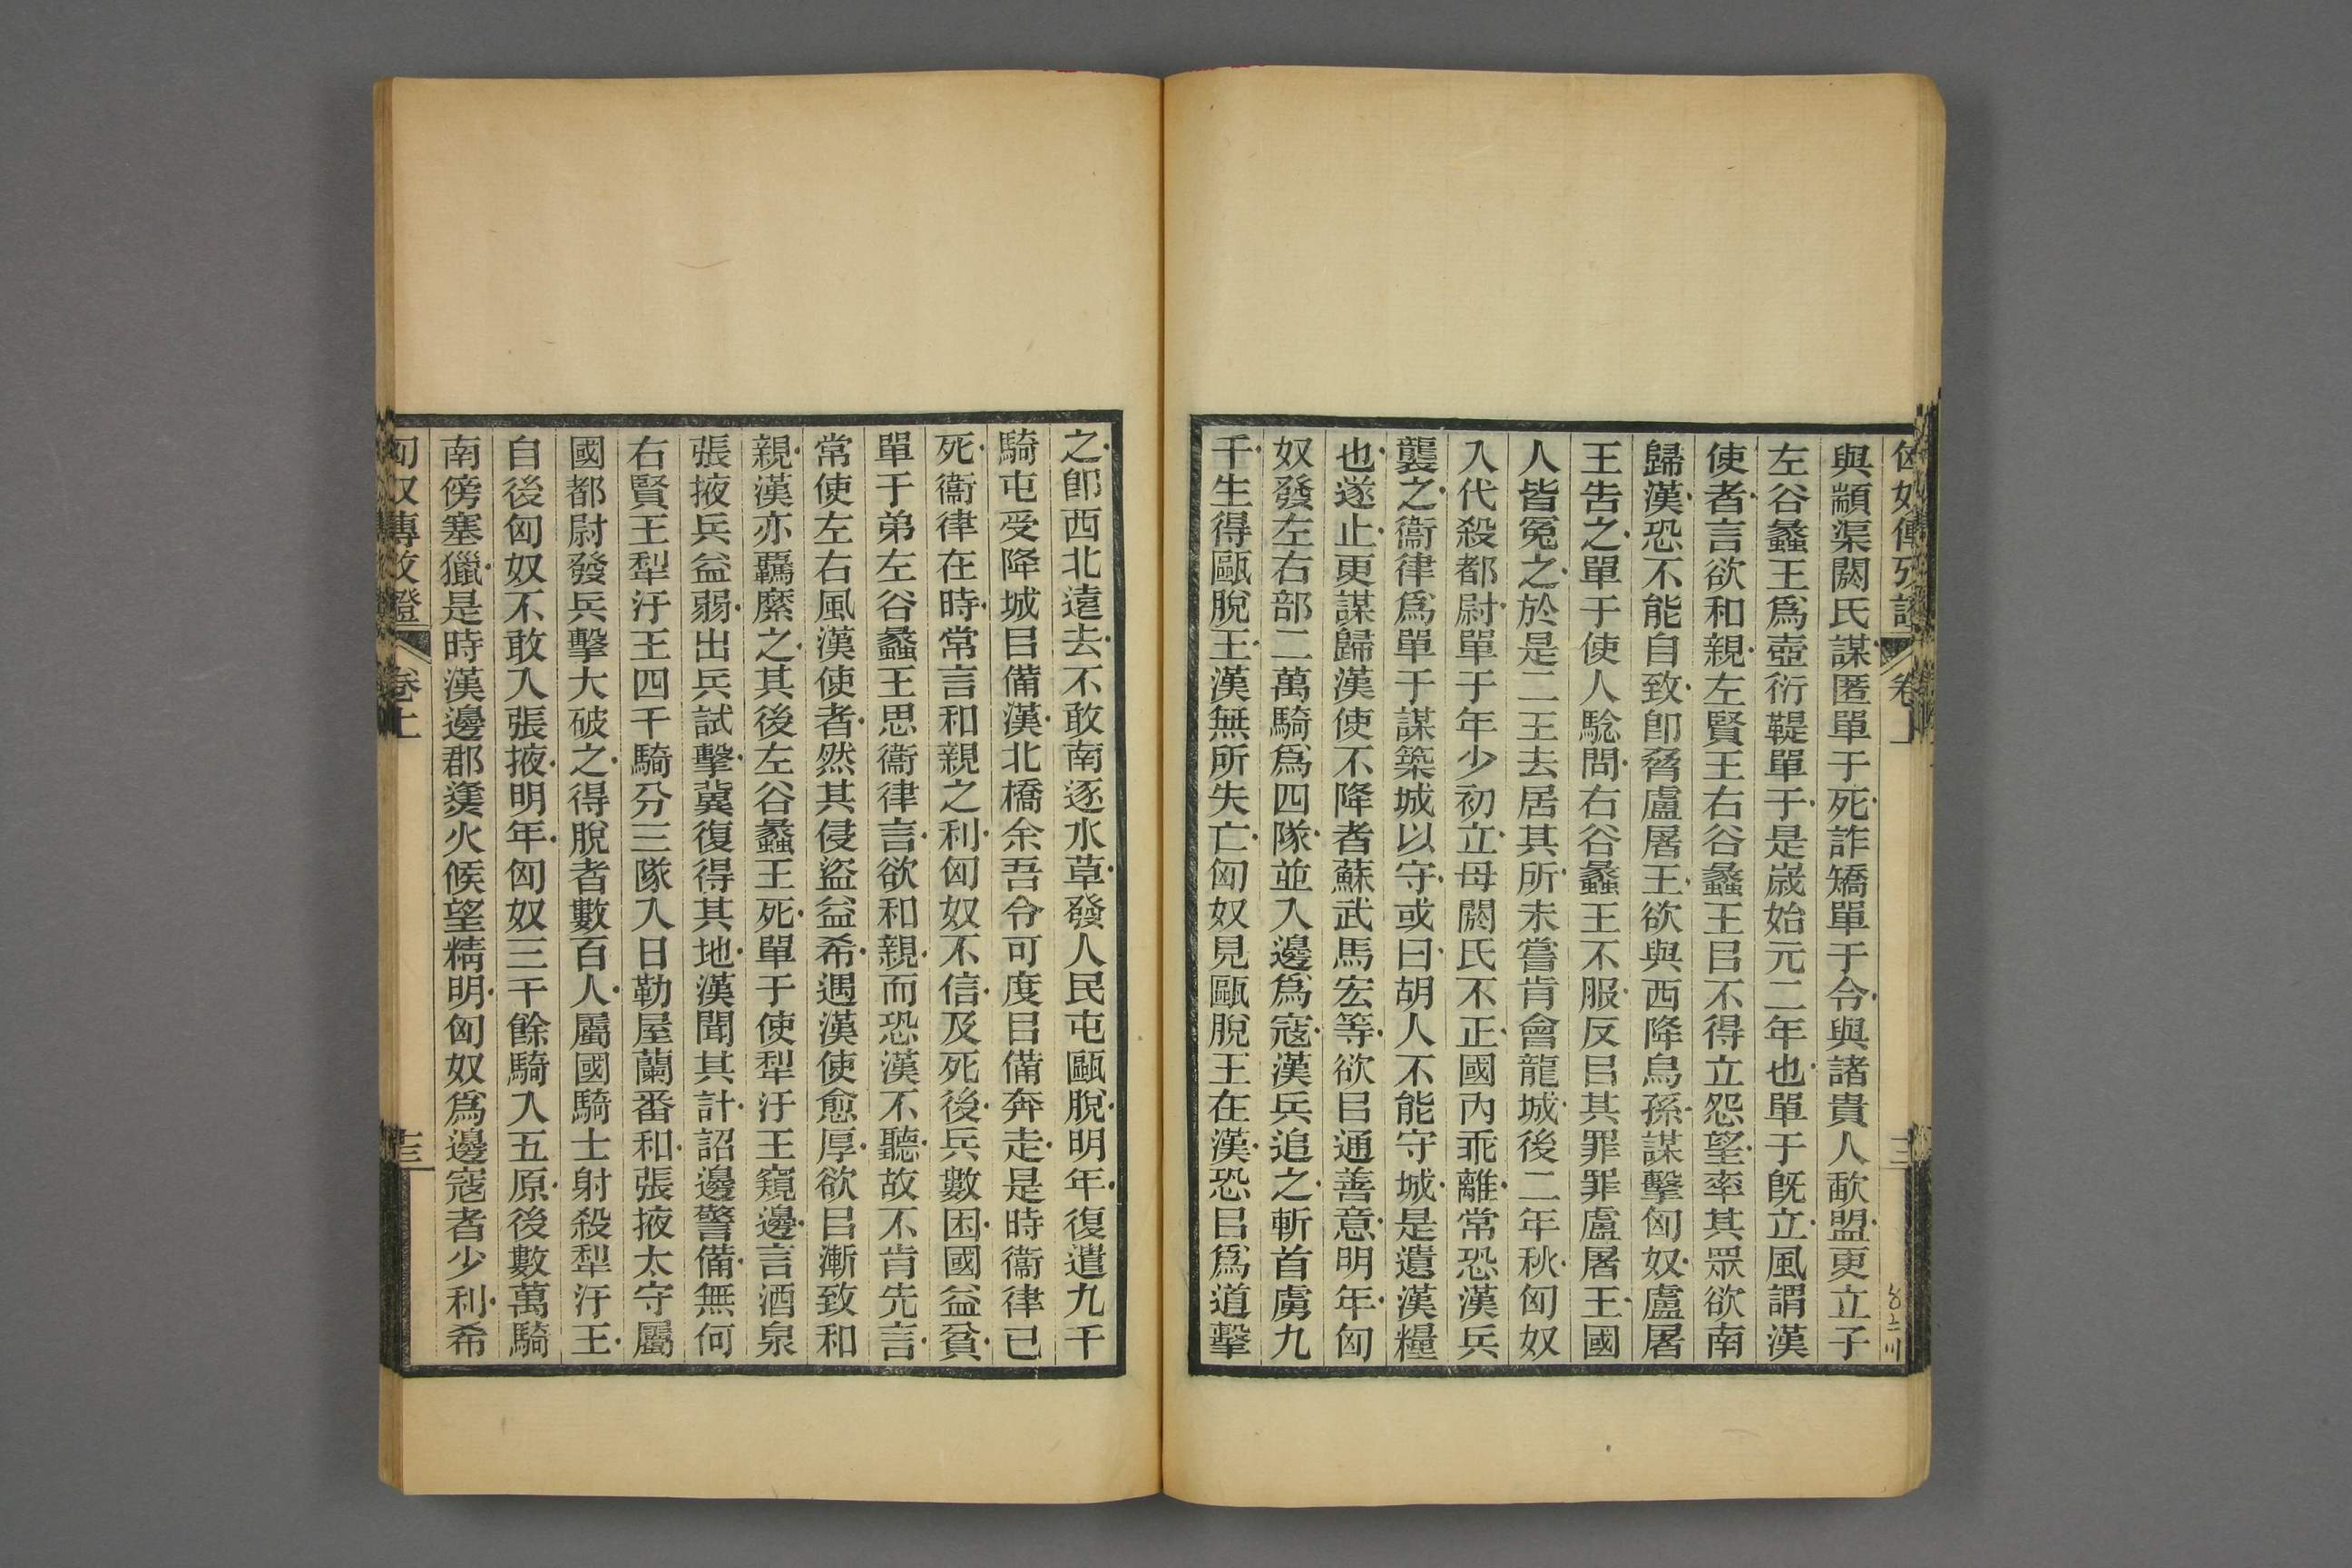 匈奴傳攷證 卷上
與顓渠閼氏謀匿單于死詐矯單于令與諸貴人歃盟更立子
左谷蠡王爲壺衍鞮單于是歲始元二年也單于旣立風謂漢
使者言欲和親左賢王右谷蠡王㠯不得立怨望率其眾欲南
歸漢恐不能自致卽脅盧屠王欲與西降烏孫謀擊匈奴盧屠
王告之單于使人驗問右谷蠡王不服反㠯其罪罪盧屠王國
人皆冤之於是二王去居其所未嘗肯會龍城後二年秋匈奴
入代殺都尉單于年少初立母閼氏不正國內乖離常恐漢兵
襲之衞律爲單于謀築城以守或曰胡人不能守城是遺漢糧
也遂止更謀歸漢使不降者蘇武馬宏等欲㠯通善意明年匈
奴發左右部二萬騎爲四隊並入邊爲寇漢兵追之斬首虜九
千生得甌脫王漢無所失亡匈奴見甌脫王在漢恐㠯爲道擊
之卽西北遠去不敢南逐水草發人民屯甌脫明年復遣九千
騎屯受降城㠯備漢北橋余吾令可度㠯備奔走是時衞律已
死衞律在時常言和親之利匈奴不信及死後兵數困國益貧
單于弟左谷蠡王思衞律言欲和親而恐漢不聽故不肯先言
常使左右風漢使者然其侵盜益希遇漢使愈厚欲㠯漸致和
親漢亦羈縻之其後左谷蠡王死單于使犁汙王窺邊言酒泉
張掖兵益弱出兵試擊冀復得其地漢聞其計詔邊警備無何
右賢王犁汙王四千騎分三隊入日勒屋蘭番和張掖太守屬
國都尉發兵擊大破之得脫者數百人屬國騎士射殺犁汙王
自後匈奴不敢入張掖明年匈奴三千餘騎入五原後數萬騎
南傍塞獵是時漢邊郡㷭火候望精明匈奴爲邊寇者少利希
匈奴傳攷證 卷上 十三